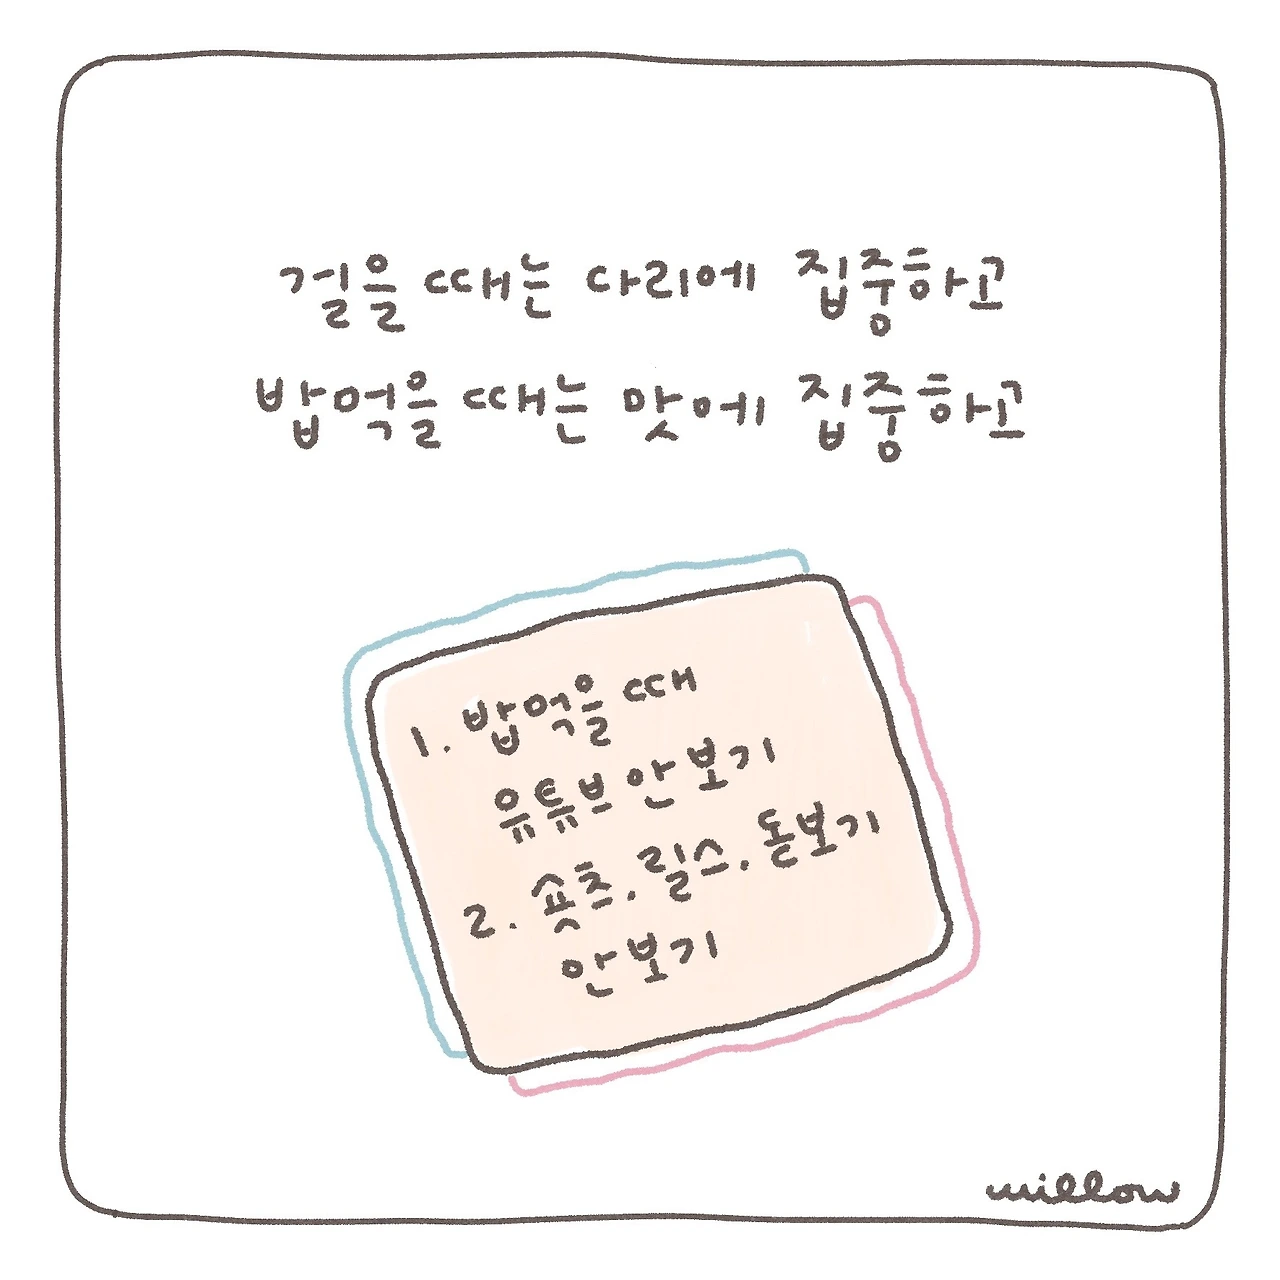 걸을 때는 다리에 집중하고
밥먹을 때는 맛에 집중하고
1. 밥먹을 때
유튜브 안 보기
2. 숏츠, 릴스, 돋보기
안 보기
millow